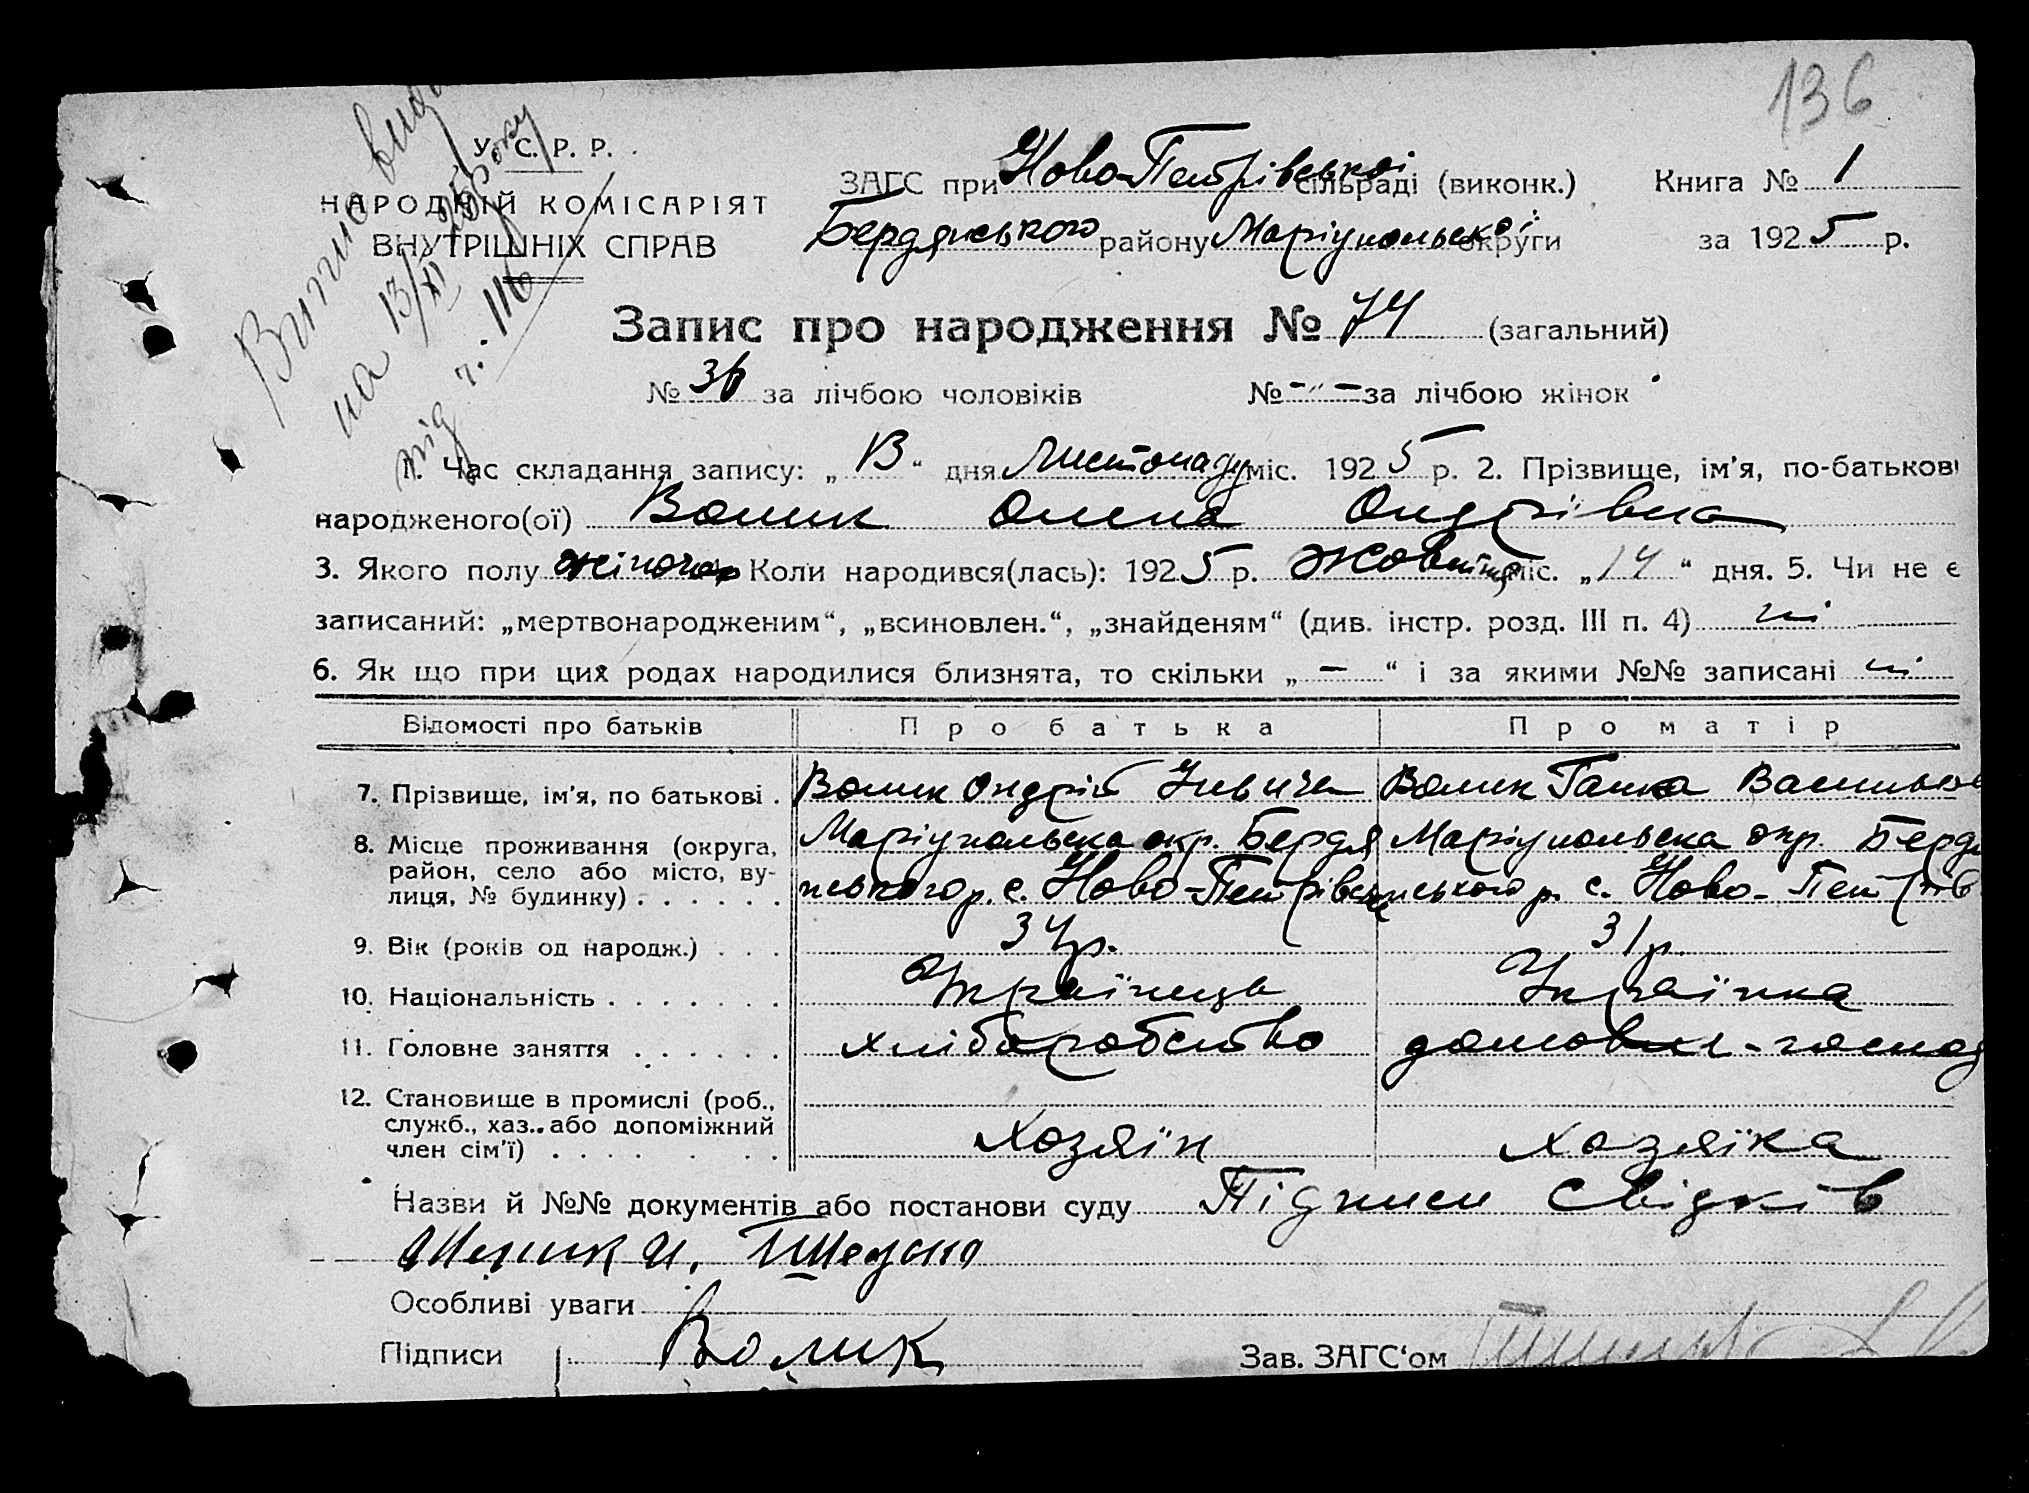 136
Випис вида
на 13/XI 25 року
під ч. 116
У. С. Р. Р.
НАРОДНІЙ КОМІСАРІЯТ
ВНУТРІШНІХ СПРАВ
ЗАГС при Ново-Петрівській сільраді (виконк.) Книга № 1
Бердянського району Маріупольської округи за 1925 р.
Запис про народження № 74 (загальний)
№ 36 за лічбою чоловіків № - " - за лічбою жінок
1. Час складання запису: „ 13 “ дня Листопаду міс. 1925 р. 2. Прізвище, ім'я, по-батькові
народженого(ої) Волик Олена Ондрівна
3. Якого полу жіночої Коли народився(лась): 1925 р. Жовтня міс. „ 14 “ дня. 5. Чи не є
записаний: „мертвонародженим“, „всиновлен.“, „знайденям“ (див. інстр. розд. III п. 4) ні
6. Як що при цих родах народилися близнята, то скільки „ — “ і за якими №№ записані ні
Відомості про батьків Про батька Про матір
7. Прізвище, ім'я, по батькові . Волик Ондрій Волик Ганна Васильов
8. Місце проживання (округа, район, село або місто, вулиця, № будинку) . . . . . .
Маріупольска окр. Бердя Маріупольска окр. Бердя
нського р. с. Ново-Петрівське нського р. с. Ново-Петрів
9. Вік (років од народж.) . . . 34 р. 31 р.
10. Національність . . . . . . . Українець Українка
11. Головне заняття . . . . . . хліборобство домовил-господ
12. Становище в промислі (роб.,
служб., хаз.. або допоміжний
член сім'ї) . . . . . . . Хозяїн хозяїка
Назви й №№ документів або постанови суду Підписи свідків
Особливі уваги
Підписи Волик Зав. ЗАГС‘ом